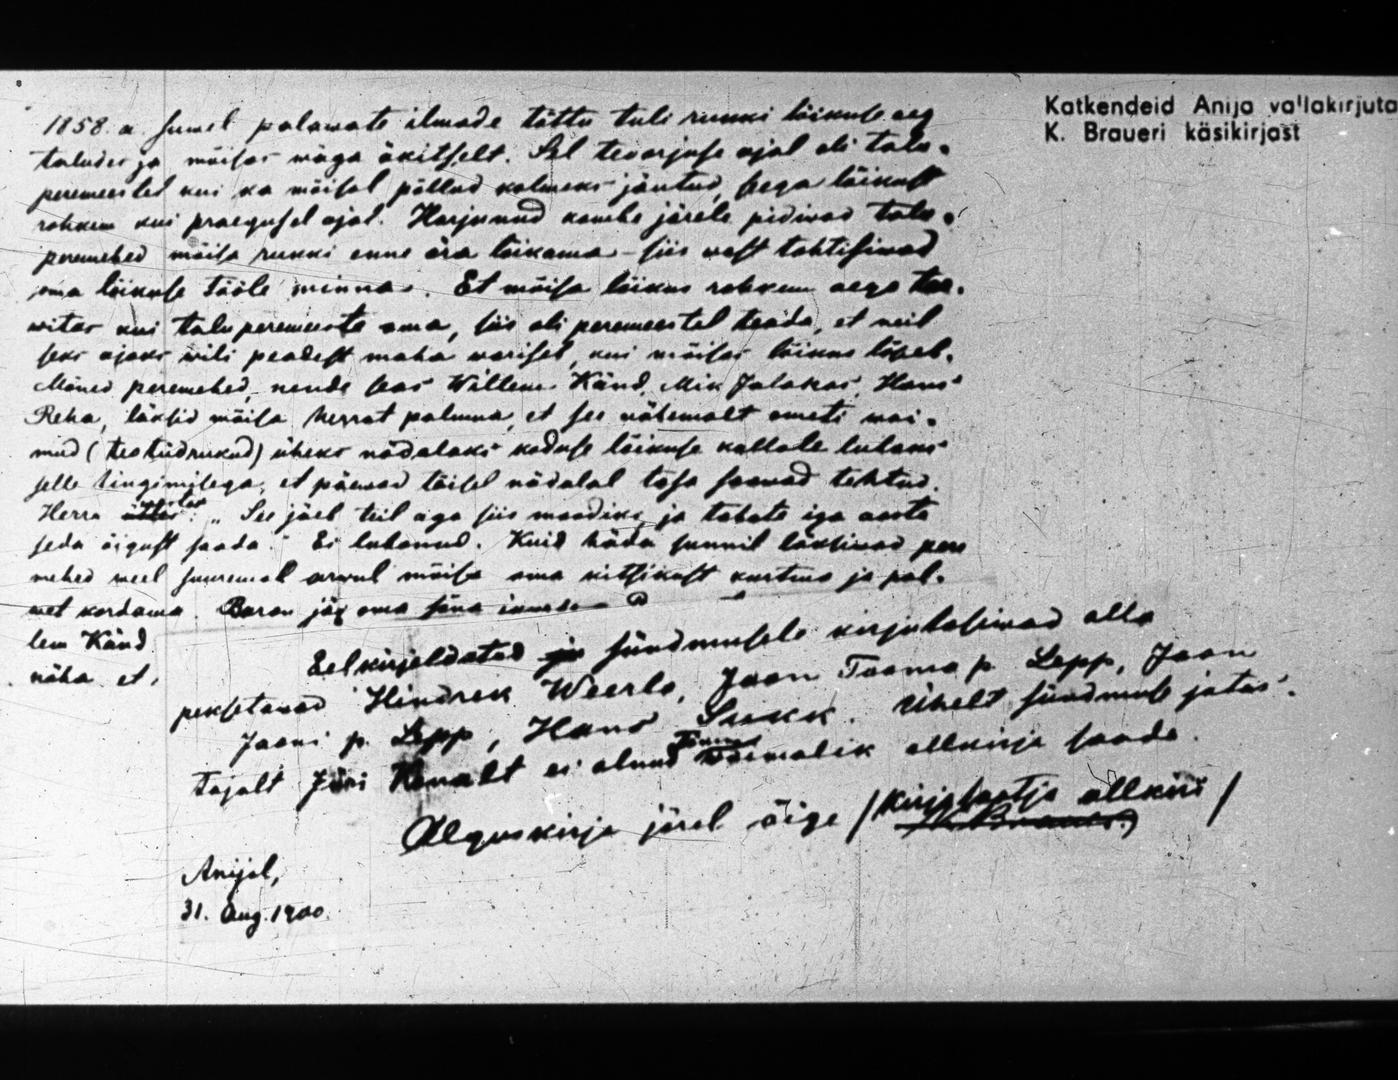 Katkendeid Anija vallakirjuta
K. Braueri käsikirjast
1858. a. suwel palawate ilmade tõttu tuli rukki lõikuse aeg
taludes ja mõisas wäga äkitselt. Sel teoorjuse ajal oli talu-
peremeestel kui ka mõisal põllud kolmeks jäutud, seega lõikust
rohkem kui praegusel ajal. Harjunud kombe järele pidiwad talu-
peremehed mõisa rukki enne ära lõikama - siis wast tohtisiwad
oma lõikuse tööle minna. Et mõisa lõikus rohkem aega tar-
witas kui talu peremeeste oma, siis oli peremeestel teada, et neil
seks ajaks wili peadest maha wariseb, kui mõisas lõikus lõpeb.
Mõned peremehed, nende seas Willem Känd, Mik Jalakas, Hans
Reha, läksid mõisa herrat paluma, et see wähemalt ometi wai-
mud (teotüdrukud) üheks nädalaks koduse lõikuse kallale lubaks
selle tingimisega, et päewad teisel nädalal tasa saawad tehtud.
Herra wastas: „See jääb teil aga siis moodiks ja tahate iga aasta
seda õigust saada." Ei lubanud. Kuid häda sunnil läksiwad pere
mehed weel suuremal arwul mõisa oma kitsikust kurtma ja pal-
wet kordama. Baron jäi oma sõna juurde
lem Känd
näha et,
Eelkirjeldatud sündmusele kirjutasiwad alla
peksetawad Hindrek Weerlo, Jaan Tooma p. Lepp, Jaan
Jaani p. Lepp, Hans Sukk. Ühelt sündmuse jutus-
tajalt Jüri Konalt ei olnud enam wõimalik allkirja saada.
Alguskirja järel õige / Kirjutaja allkiri /
K. Brauer
Anijal,
31. Aug. 1900.